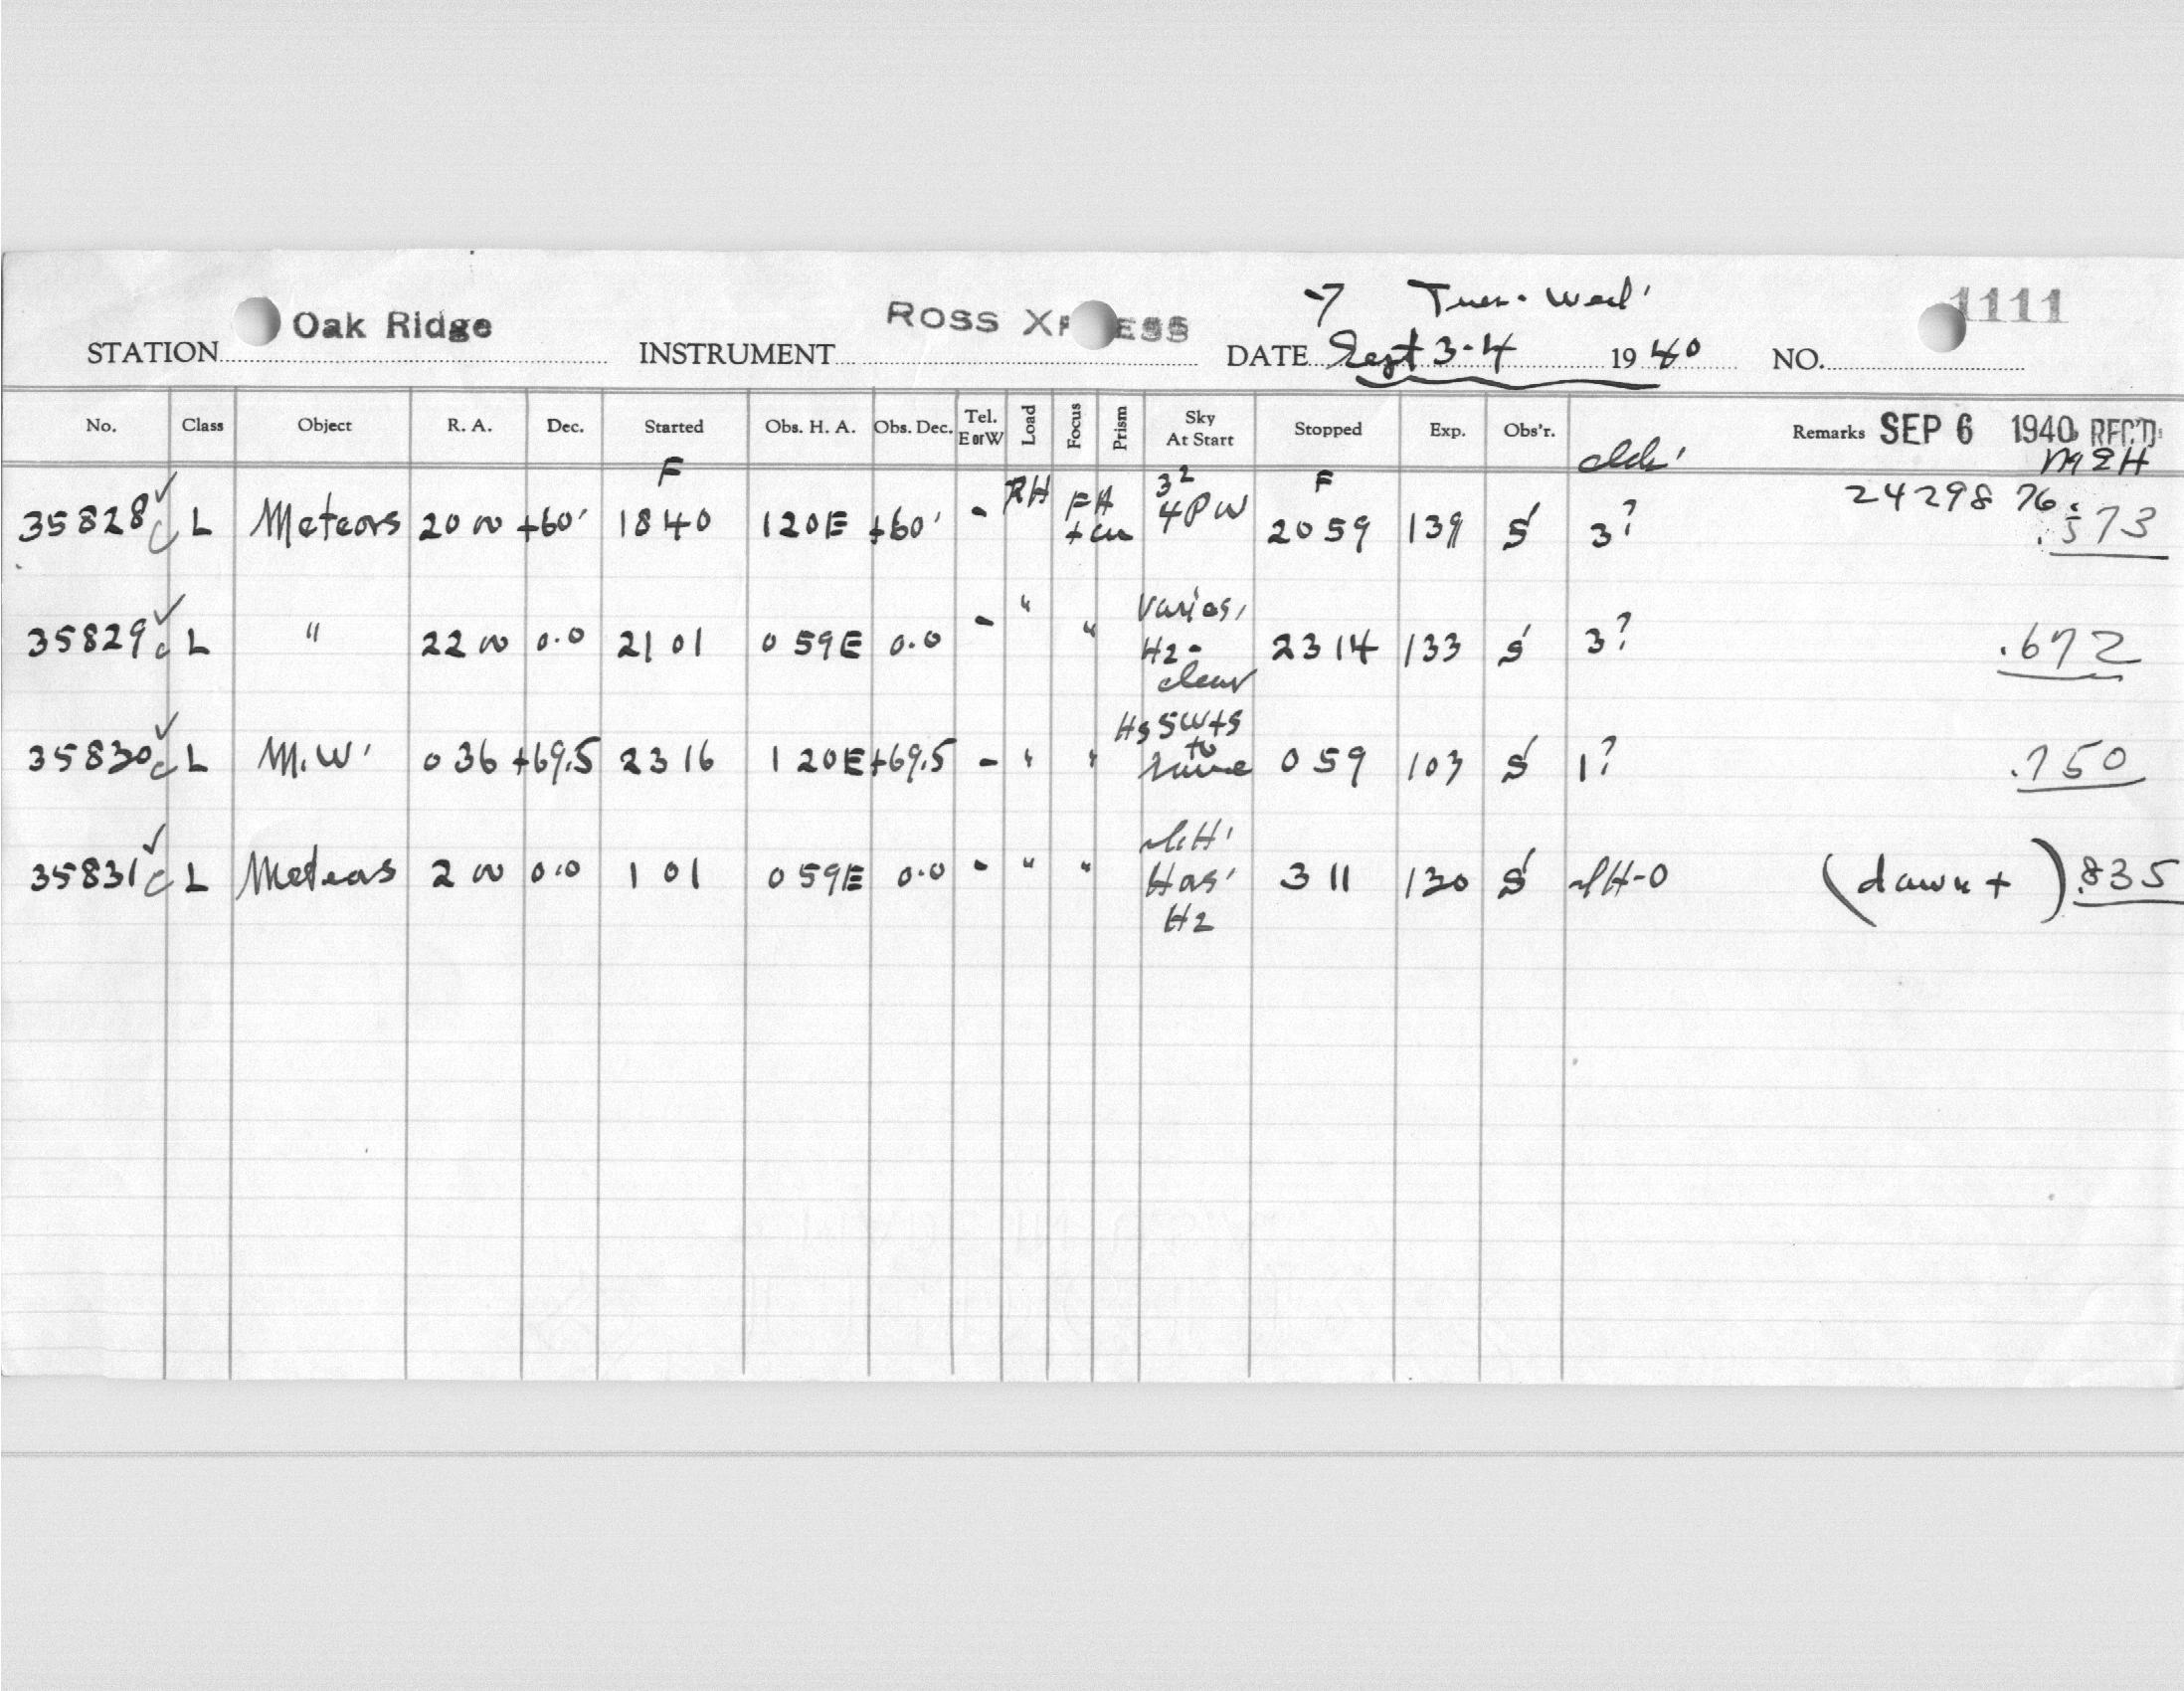 → Tues. Wed.
STATION Oak Ridge INSTRUMENT ROSS X ESS DATE Sept 3-4 1940 NO. 1111
No. Class Object R. A. Dec. Started Obs. H. A. Obs. Dec. Tel. E or W Load Focus Prism Sky At Start Stopped Exp. Obs'r. Remarks SEP 6 1940 REC'D.
F F MEH
35828 ✓ c L Meteors 20 00 +60° 18 40 1 20E +60° - RH FA 3² 4PW 20 59 139 S 3? 24298 76. .573
35829 ✓ c L " 22 00 0.0 21 01 0 59E 0.0 - " " Varies, Hz- clear 23 14 133 S 3? .672
35830 ✓ c L M.W. 0 36 +69.5 23 16 1 20E +69.5 - " " to same 0 59 103 S 1? .750
35831 ✓ c L Meteors 2 00 0.0 1 01 0 59E 0.0 - " " Hz 3 11 130 S (dawn +) .835